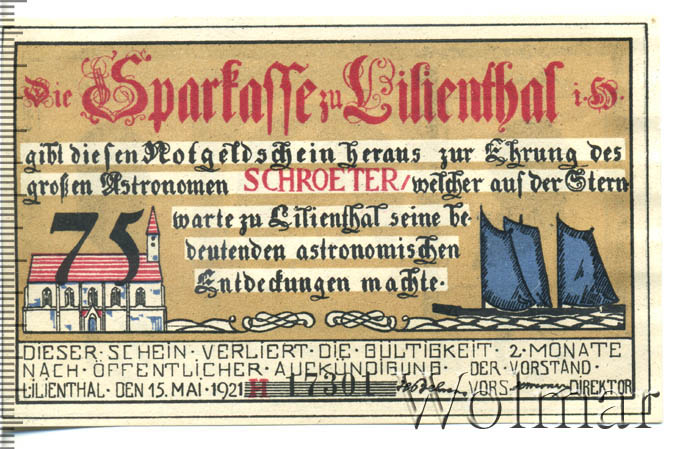 Die Sparkasse zu Lilienthal i. H.
gibt diesen Notgeldschein heraus zur Ehrung des
großen Astronomen SCHROETER/ welcher auf der Stern
warte zu Lilienthal seine be
deutenden astronomischen
Entdeckungen machte.
75
DIESER · SCHEIN · VERLIERT · DIE · GÜLTIGKEIT · 2 · MONATE
NACH · ÖFFENTLICHER · AUFKÜNDIGUNG · DER · VORSTAND ·
LILIENTHAL · DEN 15. MAI · 1921 H 17301 VORS. DIREKTOR
Wolmar